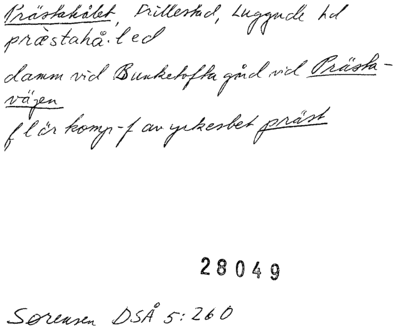 Prästahålet, Killestad, Luggude hd
præstahå.led
damm vid Bunketofta gård vid Prästa-
vägen
f l är komp-f av yrkesbet präst
28049
Sørensen DSÅ 5:260